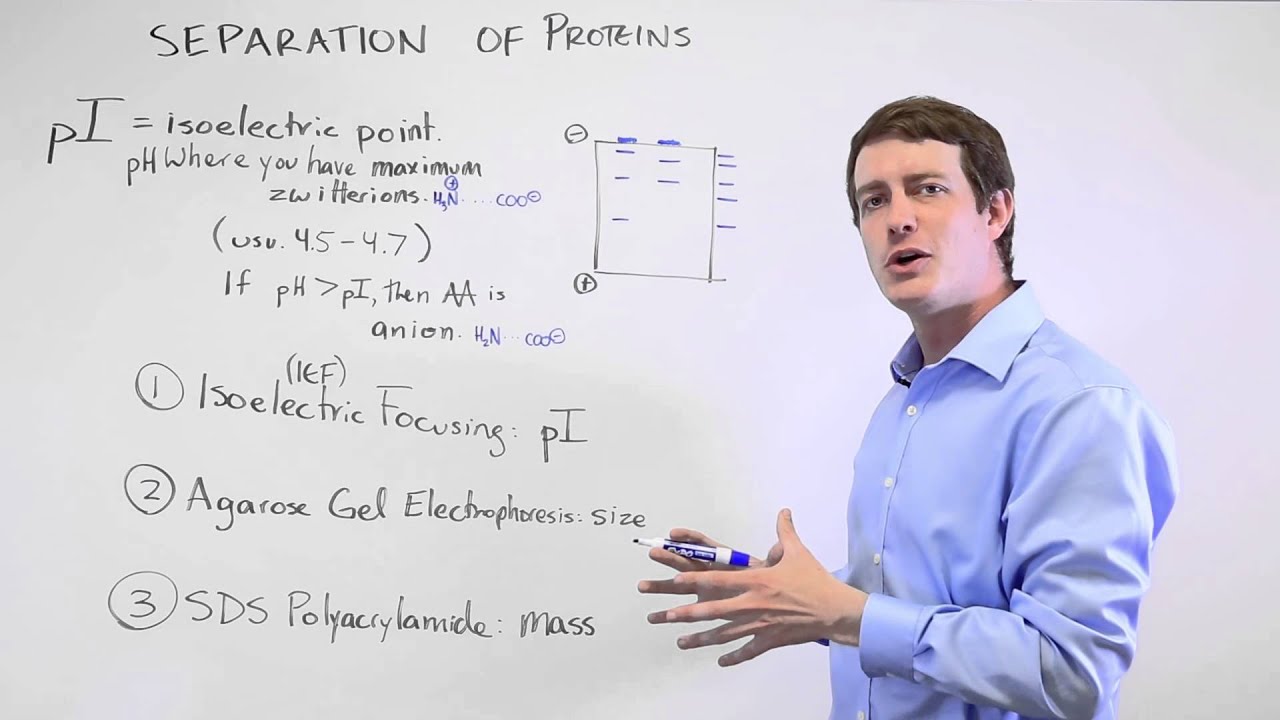 SEPARATION OF PROTEINS
pI = isoelectric point.
pH Where you have maximum
zwitterions. H₃N⊕ .... COO⊖
(usu. 4.5 – 4.7)
If pH > pI, then AA is
anion. H₂N ... COO⊖
⊖
⊕
① Isoelectric Focusing: pI
(IEF)
② Agarose Gel Electrophoresis: size
③ SDS Polyacrylamide: mass
EXPO